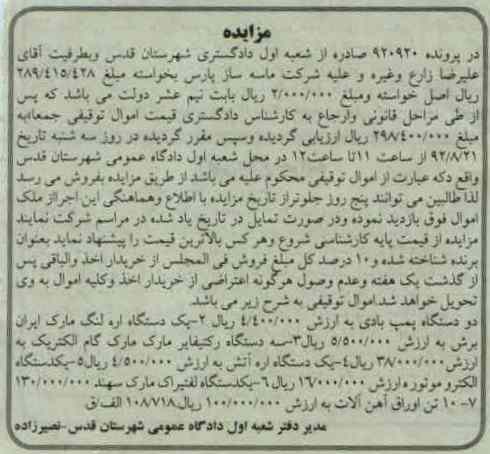 مزایده
در پرونده ۹۲۰۹۲۰ صادره از شعبه اول دادگستری شهرستان قدس وبطرفیت آقای
علیرضا زارع وغیره و علیه شرکت ماسه ساز پارس بخواسته مبلغ ۲۸۹/۴۱۵/۴۲۸
ریال اصل خواسته ومبلغ ۲/۰۰۰/۰۰۰ ریال بابت نیم عشر دولت می باشد که پس
از طی مراحل قانونی وارجاع به کارشناس دادگستری قیمت اموال توقیفی جمعابه
مبلغ ۲۹۸/۴۰۰/۰۰۰ ریال ارزیابی گردیده وسپس مقرر گردیده در روز سه شنبه تاریخ
۹۲/۸/۲۱ از ساعت ۱۱تا ساعت۱۲ در محل شعبه اول دادگاه عمومی شهرستان قدس
واقع دکه عبارت از اموال توقیفی محکوم علیه می باشد از طریق مزایده بفروش می رسد
لذا طالبین می توانند پنج روز جلوتراز تاریخ مزایده با اطلاع وهماهنگی این اجراز ملک
اموال فوق بازدید نموده ودر صورت تمایل در تاریخ یاد شده در مراسم شرکت نمایند
مزایده از قیمت پایه کارشناسی شروع وهر کس بالاترین قیمت را پیشنهاد نماید بعنوان
برنده شناخته شده و۱۰ درصد کل مبلغ فروش فی المجلس از خریدار اخذ والباقی پس
از گذشت یک هفته وعدم وصول هرگونه اعتراضی از خریدار اخذ وکلیه اموال به وی
تحویل خواهد شد.اموال توقیفی به شرح زیر می باشد.
دو دستگاه پمپ بادی به ارزش ۴/۴۰۰/۰۰۰ ریال ۲-یک دستگاه اره لنگ مارک ایران
برش به ارزش ۵/۵۰۰/۰۰۰ ریال۳-سه دستگاه رکتیفایر مارک مارک گام الکتریک به
ارزش ۳۸/۰۰۰/۰۰۰ ریال۴-یک دستگاه اره آتش به ارزش ۴/۵۰۰/۰۰۰ ریال۵-یکدستگاه
الکترو موتور ه ارزش ۱۶/۰۰۰/۰۰۰ ریال ۶-یکدستگاه لفتیراک مارک سهند ۱۳۰/۰۰۰/۰۰۰
۷- ۱۰ تن اوراق آهن آلات به ارزش ۱۰۰/۰۰۰/۰۰۰ ریال.۱۰۸/۷۱۸ الف/ق
مدیر دفتر شعبه اول دادگاه عمومی شهرستان قدس-نصیرزاده